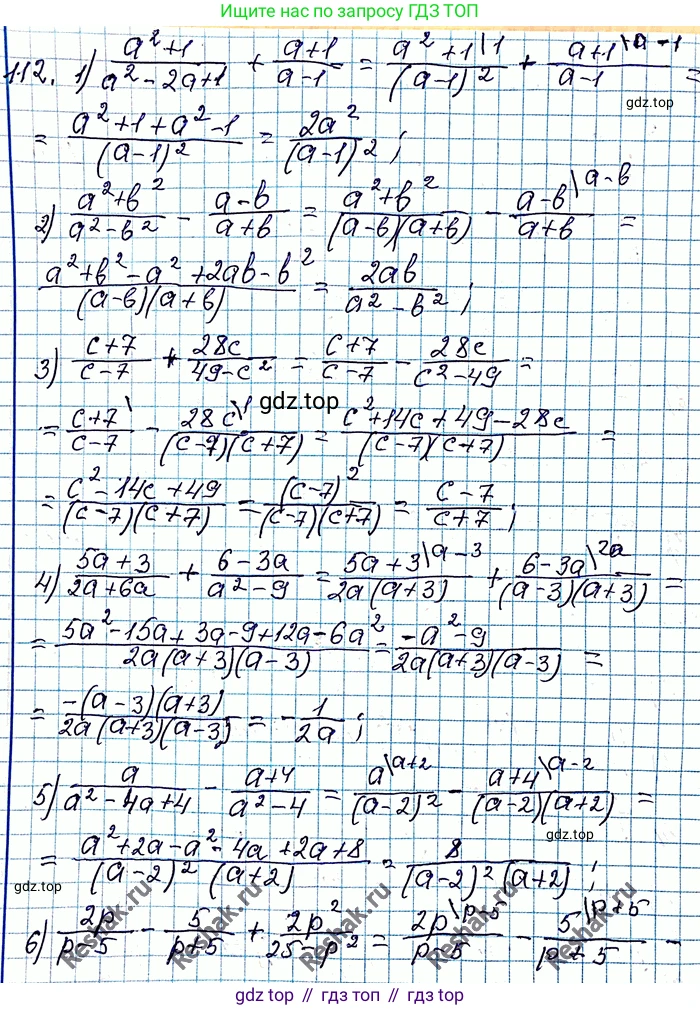 Ищите нас в поисковике по запросу ГДЗ ТОП
112. 1) (a²+1)/(a²-2a+1) + (a+1)/(a-1) = (a²+1\1)/(a-1)² + (a+1\a-1)/(a-1) =
gdz.top
= (a²+1+a²-1)/(a-1)² = 2a²/(a-1)²;
2) (a²+b²)/(a²-b²) - (a-b)/(a+b) = (a²+b²)/((a-b)(a+b)) - (a-b\a-b)/(a+b) =
(a²+b²-a²+2ab-b²)/((a-b)(a+b)) = 2ab/(a²-b²);
3) (c+7)/(c-7) + 28c/(49-c²) = (c+7)/(c-7) - 28c/(c²-49) =
gdz.top
= (c+7\)/(c-7) - (28c\1)/((c-7)(c+7)) = (c²+14c+49-28c)/((c-7)(c+7)) =
= (c²-14c+49)/((c-7)(c+7)) = (c-7)²/((c-7)(c+7)) = (c-7)/(c+7);
4) (5a+3)/(2a+6a) + (6-3a)/(a²-9) = (5a+3\a-3)/(2a(a+3)) + (6-3a\2a)/((a-3)(a+3)) =
= (5a²-15a+3a-9+12a-6a²)/(2a(a+3)(a-3)) = (-a²-9)/(2a(a+3)(a-3)) =
= -(a-3)(a+3)/(2a(a+3)(a-3)) = -1/(2a);
5) a/(a²-4a+4) - (a+4)/(a²-4) = (a\a+2)/(a-2)² - (a+4\a-2)/((a-2)(a+2)) =
= (a²+2a-a²-4a+2a+8)/((a-2)²(a+2)) = 8/((a-2)²(a+2));
6) 2p/(p-5) - 5/(p+5) + 2p²/(25-p²) = (2p\p+5)/(p-5) - (5\p+5)/(p+5) -
Reshak.ru Reshak.ru Reshak.ru Reshak.ru Reshak.ru
gdz top // гдз топ // gdz.top